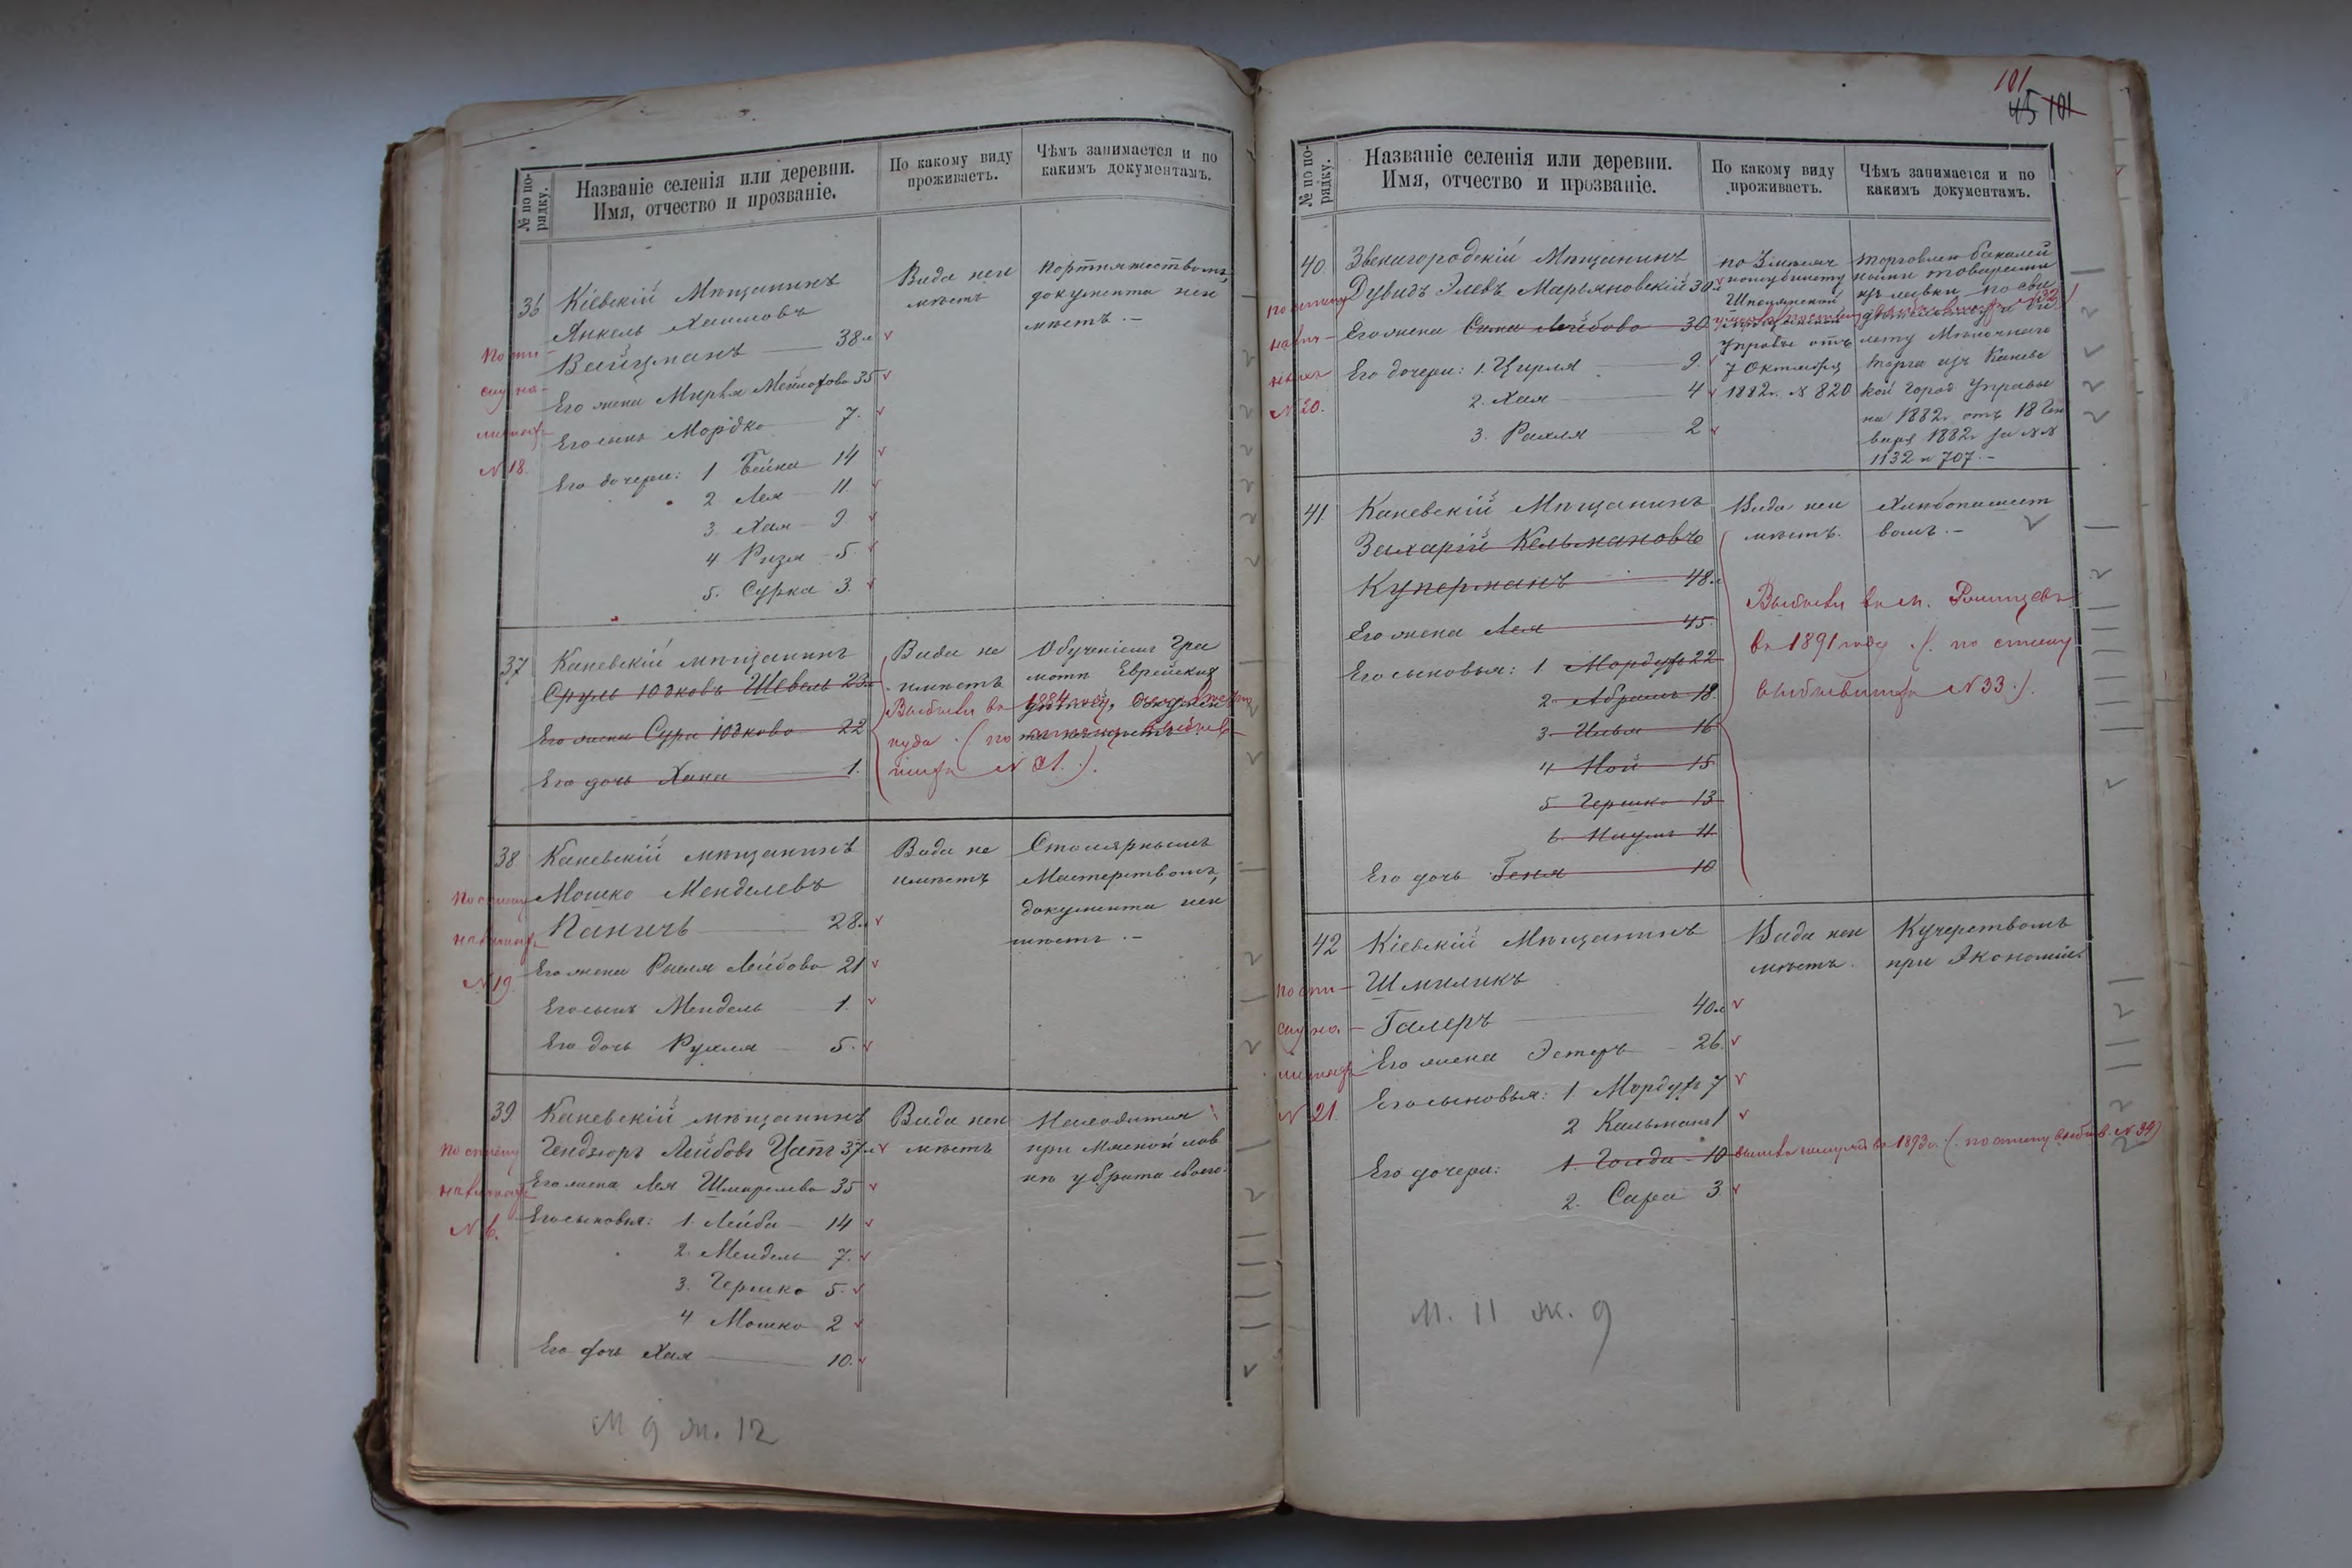 № по по-
рядку.
Названіе селенія или деревни.
Имя, отчество и прозваніе.
По какому виду
проживаетъ.
Чѣмъ занимается и по
какимъ документамъ.
36
Кіевскій Мѣщанинъ
Янкель Хаимовъ
Вайцманъ 38 л
Его жена Мирья 35
Его сынъ Мордко 7.
Его дочери: 1 Бейна 14
2. Лея 11.
3. Хая 9
4 Ризя 5.
5. Сурка 3.
Вида неи
мѣетъ
портняжествомъ,
документа неи
мѣетъ. –
По спи-
ску на-
личных
№ 18.
37
Каневскій мѣщанинъ
Сруль Юдковъ Шевель 23 л
Его жена Сура Юдкова 22
Его дочь Хана 1.
Вида не
имѣетъ
Обученіемъ Гра
моти Еврейскихъ
Выбыли въ 1884 году,
куда (по
№ 31.).
38
Каневскій мѣщанинъ
Мошко Менделевъ
Паничъ 28 л
Его жена Рыся Лейбова 21
Его сынъ Мендель 1.
Его дочь Рухля 5.
Вида не
имѣетъ
Столярнымъ
Мастерствомъ,
документа неи
мѣетъ. –
По списку
наличных
№ 19.
39
Каневскій мѣщанинъ
Гендзюръ Лейбовъ Цапъ 37 л
Его жена Лея Шмерелева 35
Его сыновья: 1. Лейба 14
2. Мендель 7.
3. Гершко 5.
4 Мошко 2
Его дочь Хая 10.
Вида неи
мѣетъ
Находится
при Мясной лав
кѣ у брата своего.
По списку
наличных
№ 6.
М 9 Ж. 12
101
45 101
№ по по-
рядку.
Названіе селенія или деревни.
Имя, отчество и прозваніе.
По какому виду
проживаетъ.
Чѣмъ занимается и по
какимъ документамъ.
40.
Звенигородскій Мѣщанинъ
Дувидъ Элевъ Марьяновскій 30 л
Его жена Сима Лейбова 30
Его дочери: 1. Цирля 9.
2. Хая 4
3. Рахля 2
по
полугодичному
Шполянской
Мѣщанской
Управы отъ
7 Октября
1882 г. № 820
торговлею бакалей
ными товарами
изъ лавки по сви
дѣтельству и би
лету Мѣлочнаго
торга изъ Каневс
кой Город Управы
на 1882 г. отъ 18 Ген
варя 1882 г за №№
1132 и 707. –
По списку
налич-
ныхъ
№ 20.
41.
Каневскій Мѣщанинъ
Захарій Кельмановъ
Куперманъ 48 л
Его жена Лея 45.
Его сыновья: 1 Мордух 22
2. Абрамъ 18.
3. Илья 16
4 Ной 15
5. Гершко 13
6. Наумъ 11
Его дочь Геня 10
Вида неи
мѣетъ.
Хлѣбопашест
вомъ. –
Выбыли въ м.
въ 1891 году (по списку
выбывших № 33.).
42
Кіевскій Мѣщанинъ
Шмиликъ
Галеръ 40 л
Его жена Эстеръ 26.
Его сыновья: 1. Мордухъ 7
2 Кальманъ 1
Его дочери: 1. Голда 10
2. Сара 3.
Вида неи
мѣетъ.
Кучерствомъ
при Экономіи.
вышла замужъ въ 1893 г. (по списку выбыв. № 34)
По спи-
ску на-
личных
№ 21.
М. 11 Ж. 9